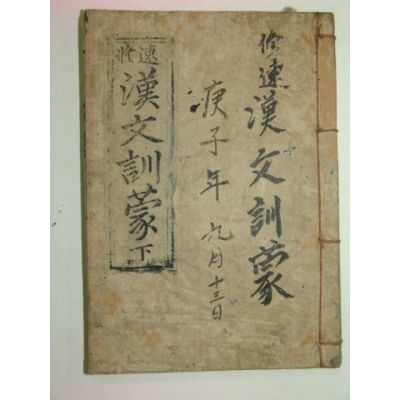 修速漢文訓蒙
庚子年九月十三日
速修
漢文訓蒙下